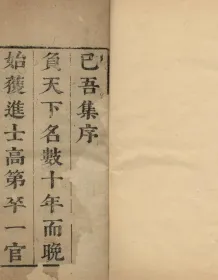 己吾集序
負天下名數十年而晩
始獲進士高第卒一官